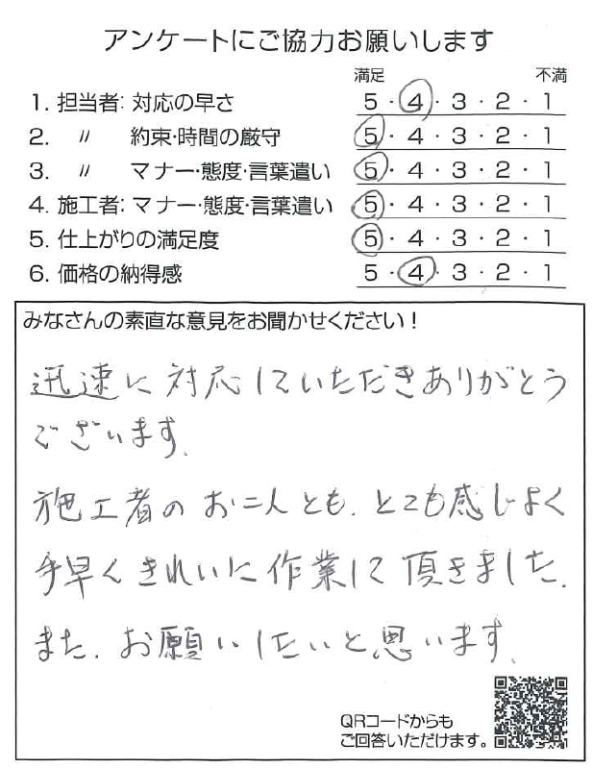 アンケートにご協力お願いします
満足 不満
1. 担当者: 対応の早さ 5・4・3・2・1
2. 〃 約束・時間の厳守 5・4・3・2・1
3. 〃 マナー・態度・言葉遣い 5・4・3・2・1
4. 施工者: マナー・態度・言葉遣い 5・4・3・2・1
5. 仕上がりの満足度 5・4・3・2・1
6. 価格の納得感 5・4・3・2・1
みなさんの素直な意見をお聞かせください！
迅速に対応していただきありがとう
ございます。
施工者のお二人とも、とても感じよく
手早くきれいに作業して頂きました。
また、お願いしたいと思います。
QRコードからも
ご回答いただけます。